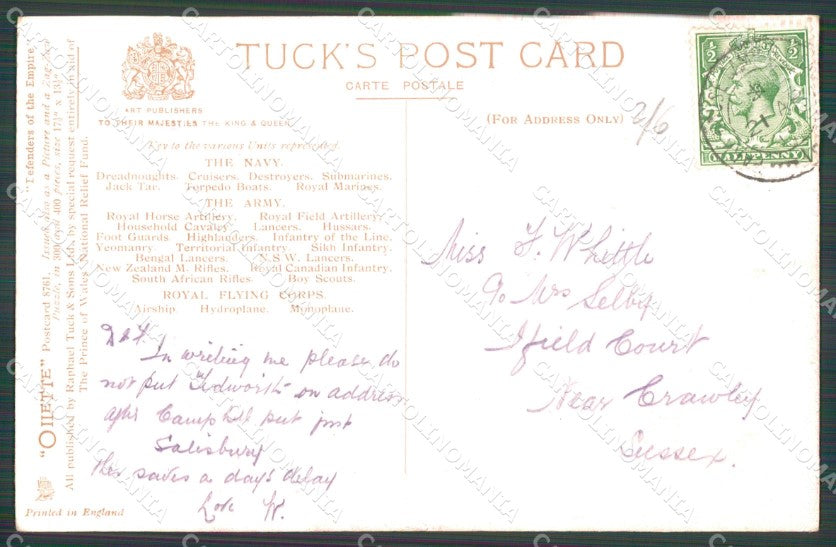 TUCK'S POST CARD
CARTE POSTALE
ART PUBLISHERS
TO THEIR MAJESTIES THE KING & QUEEN
(FOR ADDRESS ONLY)
2/6
½ ½
HALFPENNY
Key to the various Units represented.
THE NAVY.
Dreadnoughts. Cruisers. Destroyers. Submarines.
Jack Tar. Torpedo Boats. Royal Marines.
THE ARMY.
Royal Horse Artillery. Royal Field Artillery.
Household Cavalry. Lancers. Hussars.
Foot Guards. Highlanders. Infantry of the Line.
Yeomanry Territorial Infantry. Sikh Infantry.
Bengal Lancers. N.S.W. Lancers.
New Zealand M. Rifles. Royal Canadian Infantry.
South African Rifles Boy Scouts.
ROYAL FLYING CORPS.
Airship. Hydroplane. Monoplane.
In writing me please do
not put Tidworth on address
after Camp but put just
Salisbury
this saves a day's delay
Love W.
Miss F. Whittle
c/o Mrs Selby
Ifield Court
Near Crawley
Sussex.
"OILETTE" Postcard 8761. "Defenders of the Empire."
All published by Raphael Tuck & Sons Ltd., by special request entirely in aid of
The Prince of Wales' National Relief Fund.
Printed in England
CARTOLINOMANIA